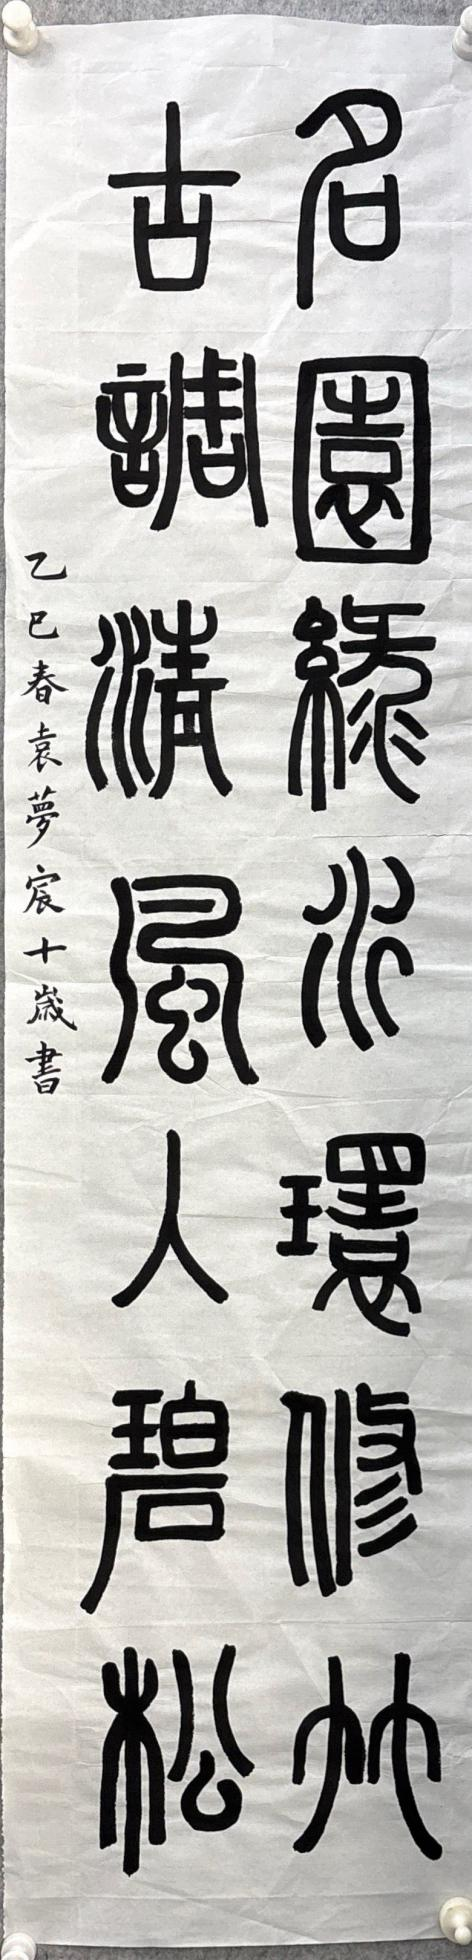 名園綠水環修竹
古調清風入碧松
乙巳春袁夢宸十歲書